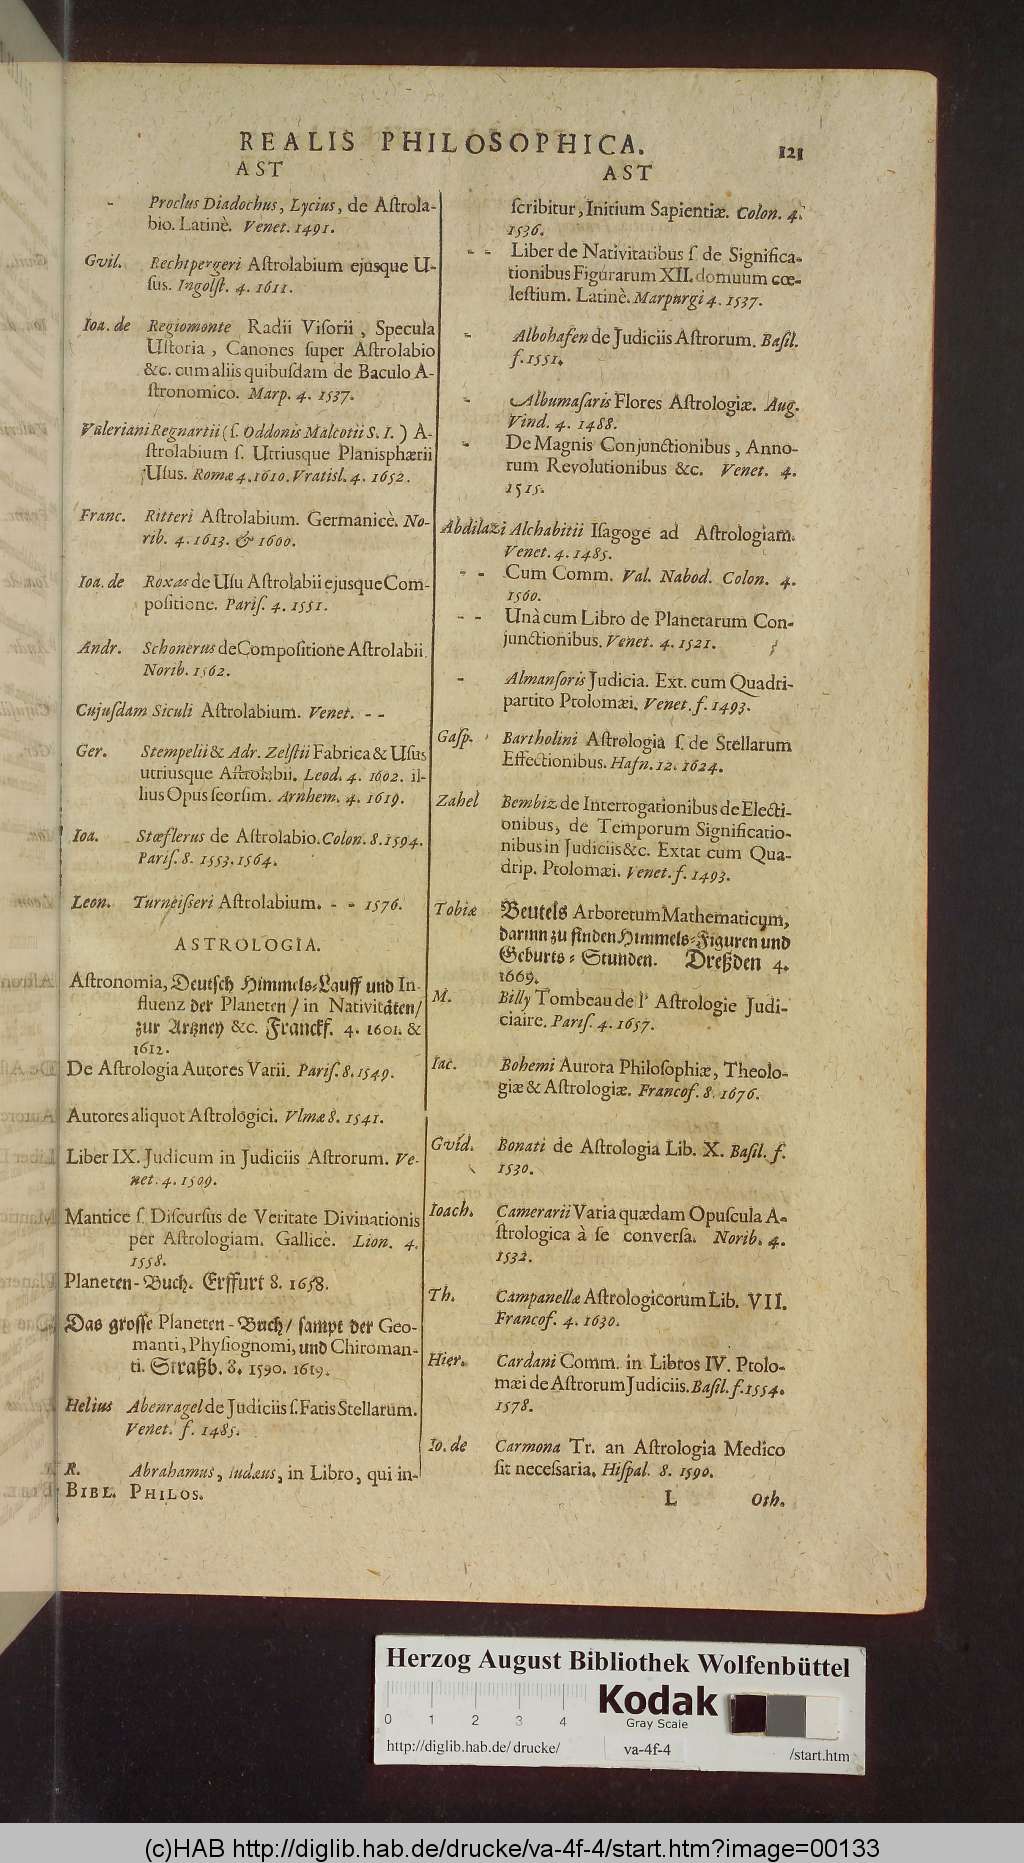 REALIS PHILOSOPHICA. 121
AST
- Proclus Diadochus, Lycius, de Aſtrola-
bio. Latinè. Venet. 1491.
Gvil. Rechtpergeri Aſtrolabium ejusque U-
ſus. Ingolſt. 4. 1611.
Ioa. de Regiomonte Radii Viſorii, Specula
Uſtoria, Canones ſuper Aſtrolabio
&c. cum aliis quibuſdam de Baculo A-
ſtronomico. Marp. 4. 1537.
Valeriani Regnartii (ſ. Oddonis Malcotii S. I.) A-
ſtrolabium ſ. Utriusque Planisphærii
Uſus. Romæ 4. 1610. Vratisl. 4. 1652.
Franc. Ritteri Aſtrolabium. Germanicè. No-
rib. 4. 1613. & 1600.
Ioa. de Roxas de Uſu Aſtrolabii ejusque Com-
poſitione. Pariſ. 4. 1551.
Andr. Schonerus de Compoſitione Aſtrolabii.
Norib. 1562.
Cujuſdam Siculi Aſtrolabium. Venet. - -
Ger. Stempelii & Adr. Zelſtii Fabrica & Uſus
utriusque Aſtrolabii. Leod. 4. 1602. il-
lius Opus ſeorſim. Arnhem. 4. 1619.
Ioa. Stœflerus de Aſtrolabio. Colon. 8. 1594.
Pariſ. 8. 1553. 1564.
Leon. Turneiſſeri Aſtrolabium. - - 1576.
ASTROLOGIA.
Astronomia, Deutſch Himmels-Lauff und In-
fluenz der Planeten / in Nativitäten /
zur Artzney &c. Franckf. 4. 1601. &
1612.
De Aſtrologia Autores Varii. Pariſ. 8. 1549.
Autores aliquot Aſtrologici. Vlmæ 8. 1541.
Liber IX. Judicum in Judiciis Aſtrorum. Ve-
net. 4. 1509.
Mantice ſ. Diſcurſus de Veritate Divinationis
per Aſtrologiam. Gallicè. Lion. 4.
1558.
Planeten-Buch. Erffurt 8. 1658.
Das groſſe Planeten-Buch / ſampt der Geo-
manti, Phyſiognomi, und Chiroman-
ti. Straßb. 8. 1590. 1619.
Helius Abenragel de Judiciis ſ. Fatis Stellarum.
Venet. f. 1485.
R. Abrahamus, Iudæus, in Libro, qui in-
BIBL. PHILOS.
AST
ſcribitur, Initium Sapientiæ. Colon. 4.
1536.
- - Liber de Nativitatibus ſ de Significa-
tionibus Figurarum XII. domuum cœ-
leſtium. Latinè. Marpurgi 4. 1537.
- Albohafen de Judiciis Aſtrorum. Baſil.
f. 1551.
- Albumaſaris Flores Aſtrologiæ. Aug.
Vind. 4. 1488.
- De Magnis Conjunctionibus, Anno-
rum Revolutionibus &c. Venet. 4.
1515.
Abdilazi Alchabitii Iſagoge ad Aſtrologiam.
Venet. 4. 1485.
- - Cum Comm. Val. Nabod. Colon. 4.
1560.
- - Unà cum Libro de Planetarum Con-
junctionibus. Venet. 4. 1521.
- Almanſoris Judicia. Ext. cum Quadri-
partito Ptolomæi. Venet. f. 1493.
Gaſp. Bartholini Aſtrologia ſ. de Stellarum
Effectionibus. Hafn. 12. 1624.
Zahel Bembiz de Interrogationibus de Electi-
onibus, de Temporum Significatio-
nibus in Judiciis &c. Extat cum Qua-
drip. Ptolomæi. Venet. f. 1493.
Tobiæ Beutels Arboretum Mathematicum,
darinn zu finden Himmels-Figuren und
Geburts-Stunden. Dreßden 4.
1669.
M. Billy Tombeau de l' Aſtrologie Judi-
ciaire. Pariſ. 4. 1657.
Iac. Bohemi Aurora Philoſophiæ, Theolo-
giæ & Aſtrologiæ. Francof. 8. 1676.
Gvid. Bonati de Aſtrologia Lib. X. Baſil. f.
1530.
Ioach. Camerarii Varia quædam Opuſcula A-
ſtrologica à ſe converſa. Norib. 4.
1532.
Th. Campanellæ Aſtrologicorum Lib. VII.
Francof. 4. 1630.
Hier. Cardani Comm. in Libros IV. Ptolo-
mæi de Aſtrorum Judiciis. Baſil. f. 1554.
1578.
Io. de Carmona Tr. an Aſtrologia Medico
ſit neceſſaria. Hiſpal. 8. 1590.
L Oth.
Herzog August Bibliothek Wolfenbüttel
Kodak
Gray Scale
0 1 2 3 4
http://diglib.hab.de/drucke/ va-4f-4 /start.htm
(c)HAB http://diglib.hab.de/drucke/va-4f-4/start.htm?image=00133